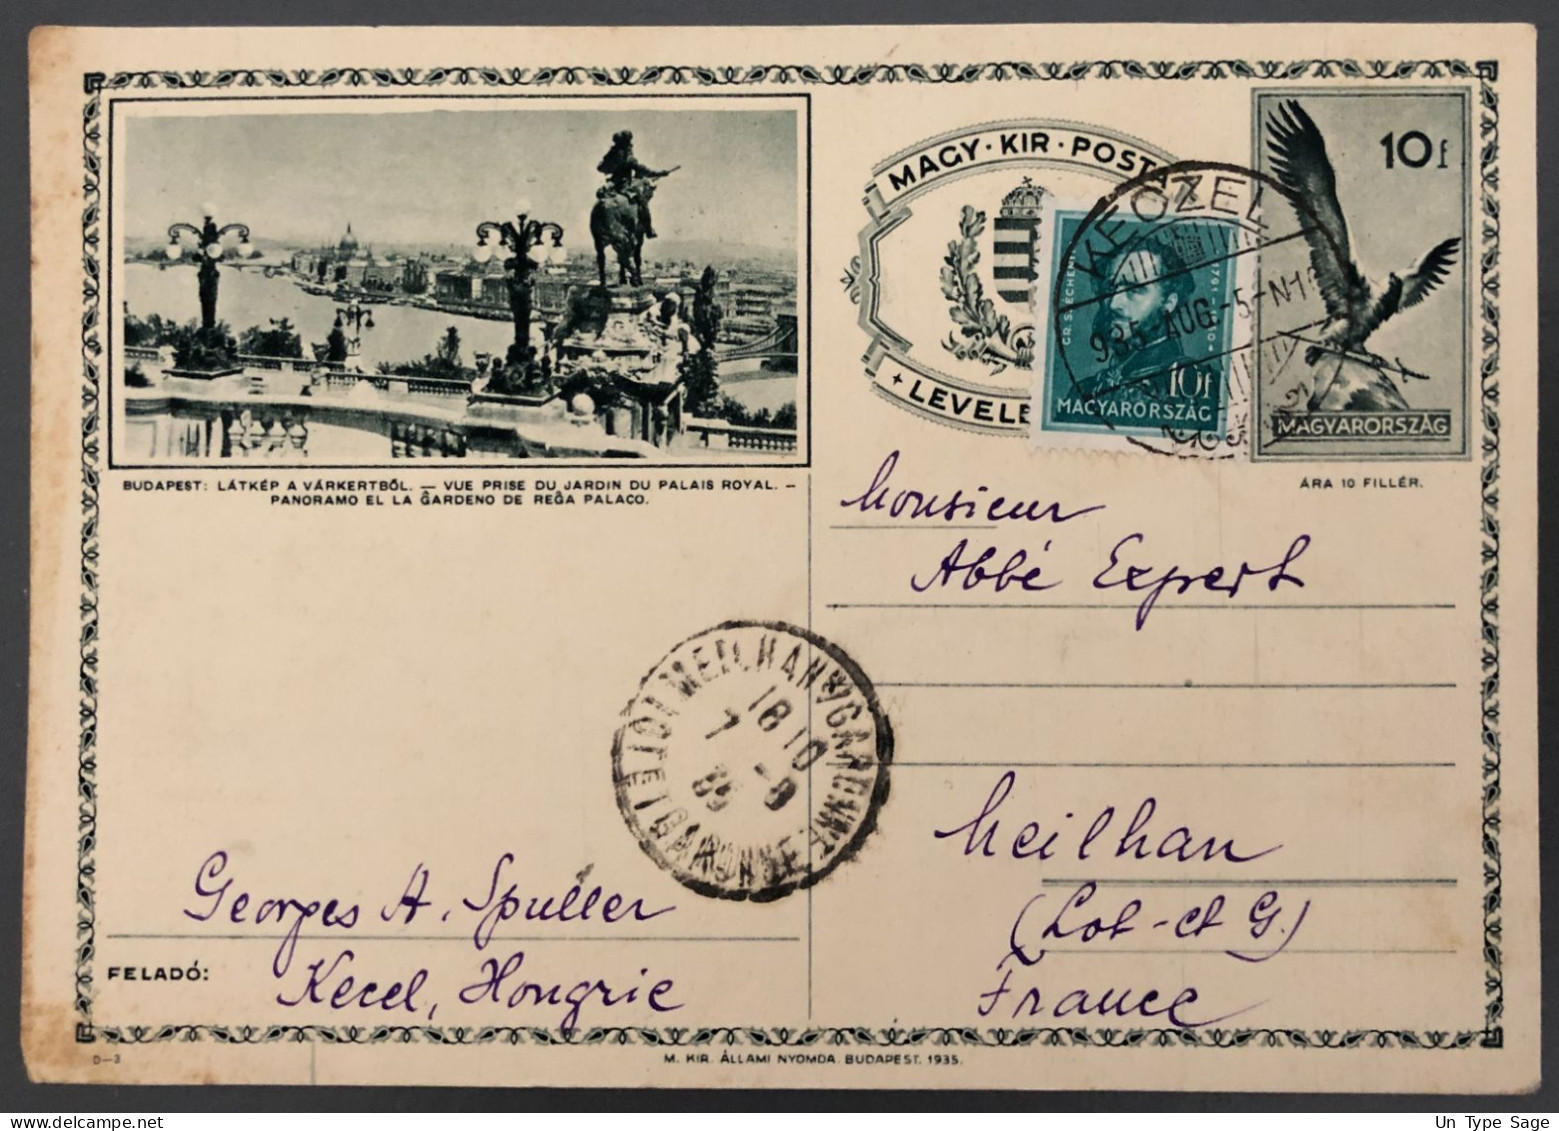 MAGY · KIR · POSTA
LEVELE
10 f
MAGYARORSZÁG
ÁRA 10 FILLÉR.
GR. SZÉCHENYI
10f
MAGYARORSZÁG
935-AUG.-5-N
BUDAPEST: LÁTKÉP A VÁRKERTBŐL. — VUE PRISE DU JARDIN DU PALAIS ROYAL. —
PANORAMO EL LA ĜARDENO DE REĜA PALACO.
Monsieur
Abbé Expert
Meilhan
(Lot-et G.)
France
MEILHAN S/GARONNE
LOT ET GARONNE
18 10
7 -8
35
Georges A. Spuller
FELADÓ:
Kecel, Hongrie
D—3
M. KIR. ÁLLAMI NYOMDA. BUDAPEST. 1935.
Un Type Sage